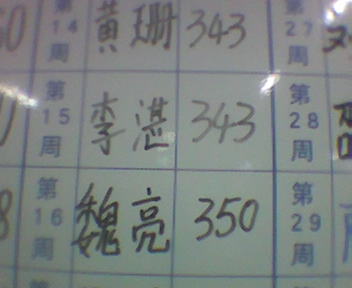 14周 黄珊 343 27
第15周 李湛 343 第28周
第16周 魏亮 350 第29周